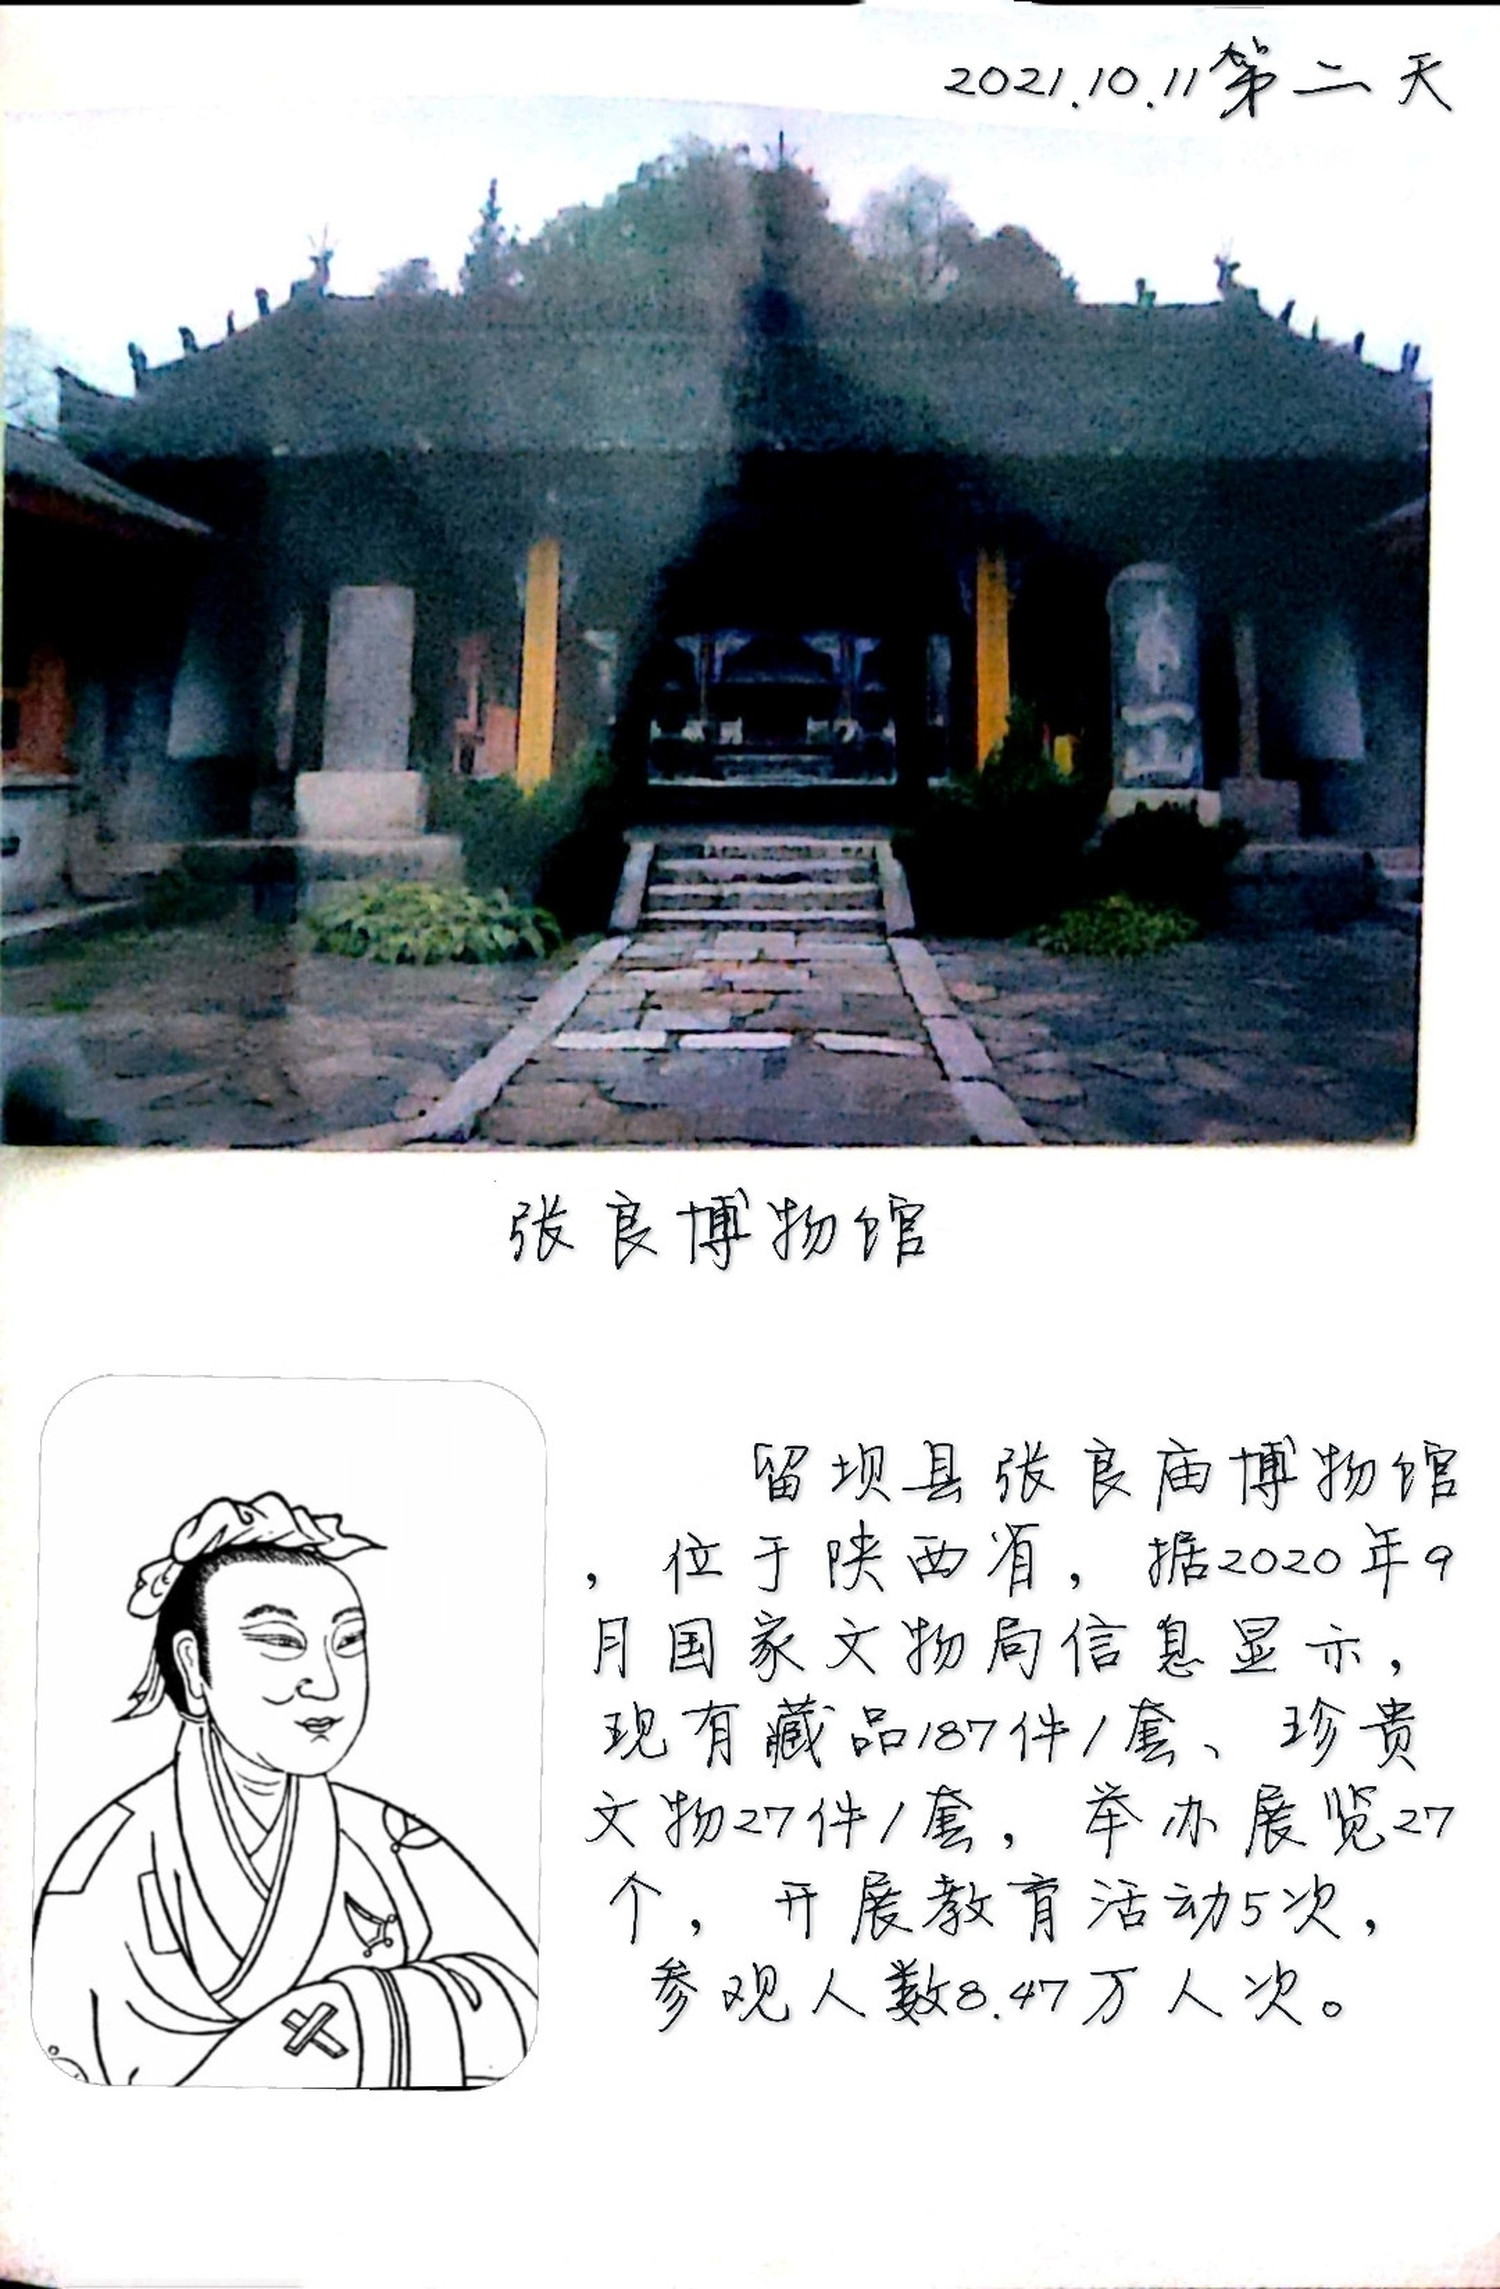 2021.10.11第二天
张良博物馆
留坝县张良庙博物馆
，位于陕西省，据2020年9
月国家文物局信息显示，
现有藏品187件/套、珍贵
文物27件/套，举办展览27
个，开展教育活动5次，
参观人数8.47万人次。